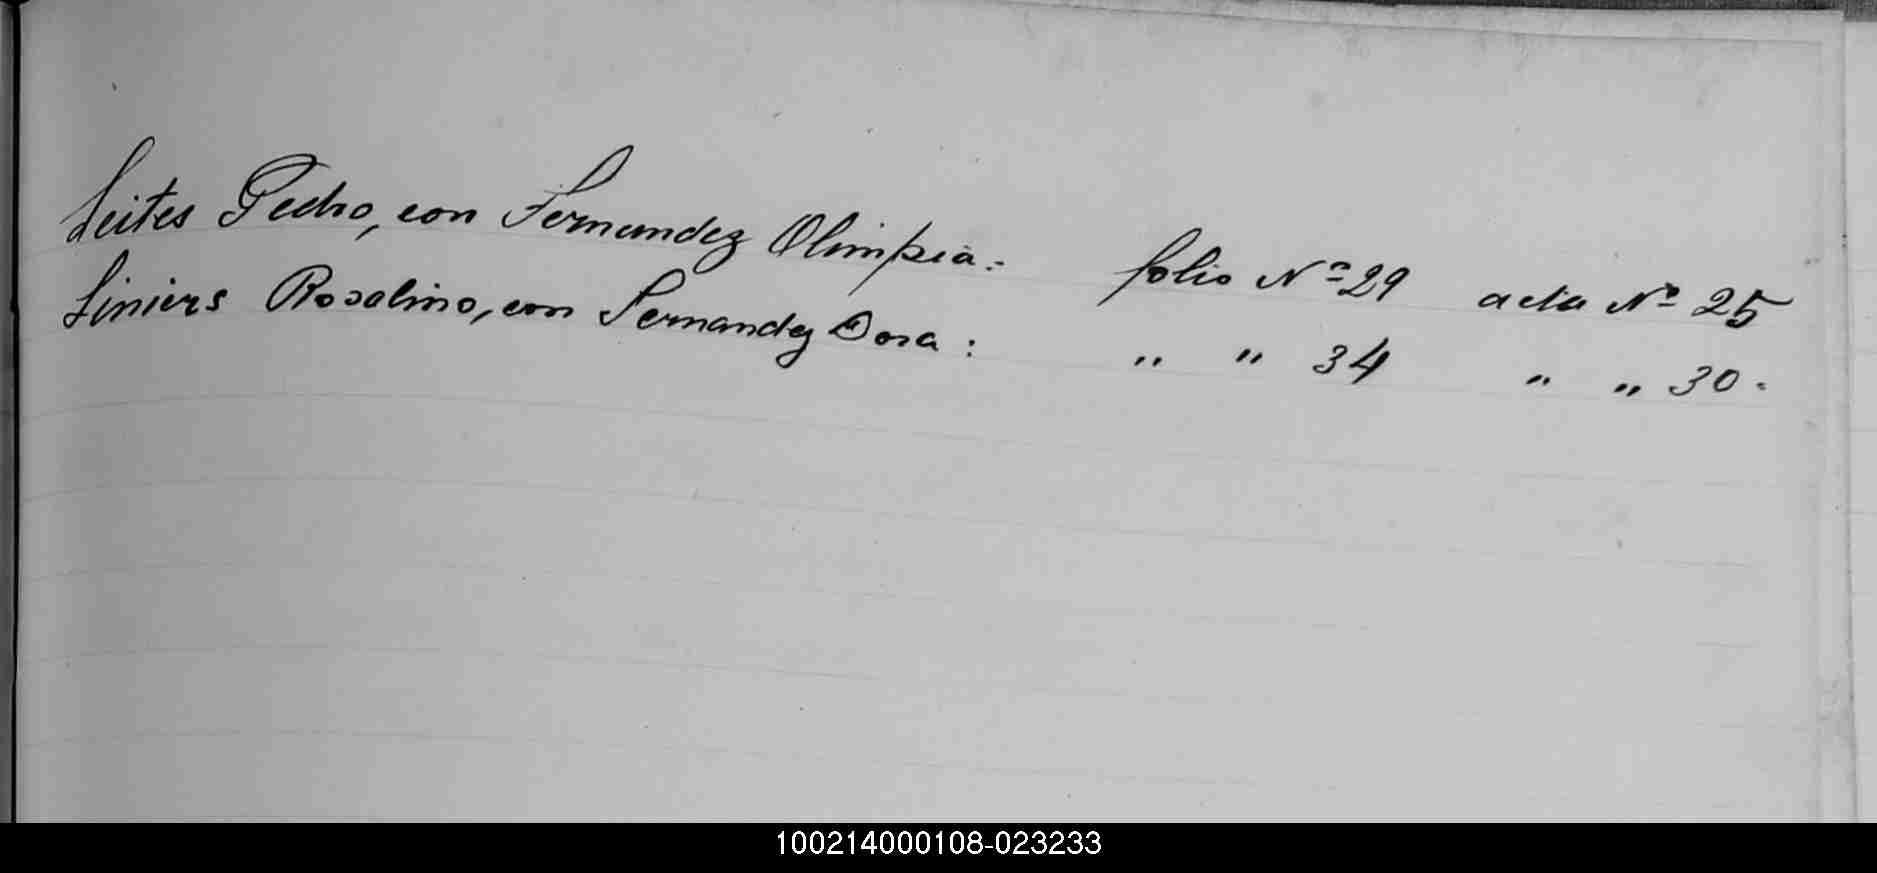 Leites Pedro, con Fernandez Olimpia.- folio Nº 29 acta Nº 25
Liniers Rosalino, con Fernandez Dora: " " 34 " " 30.
100214000108-023233